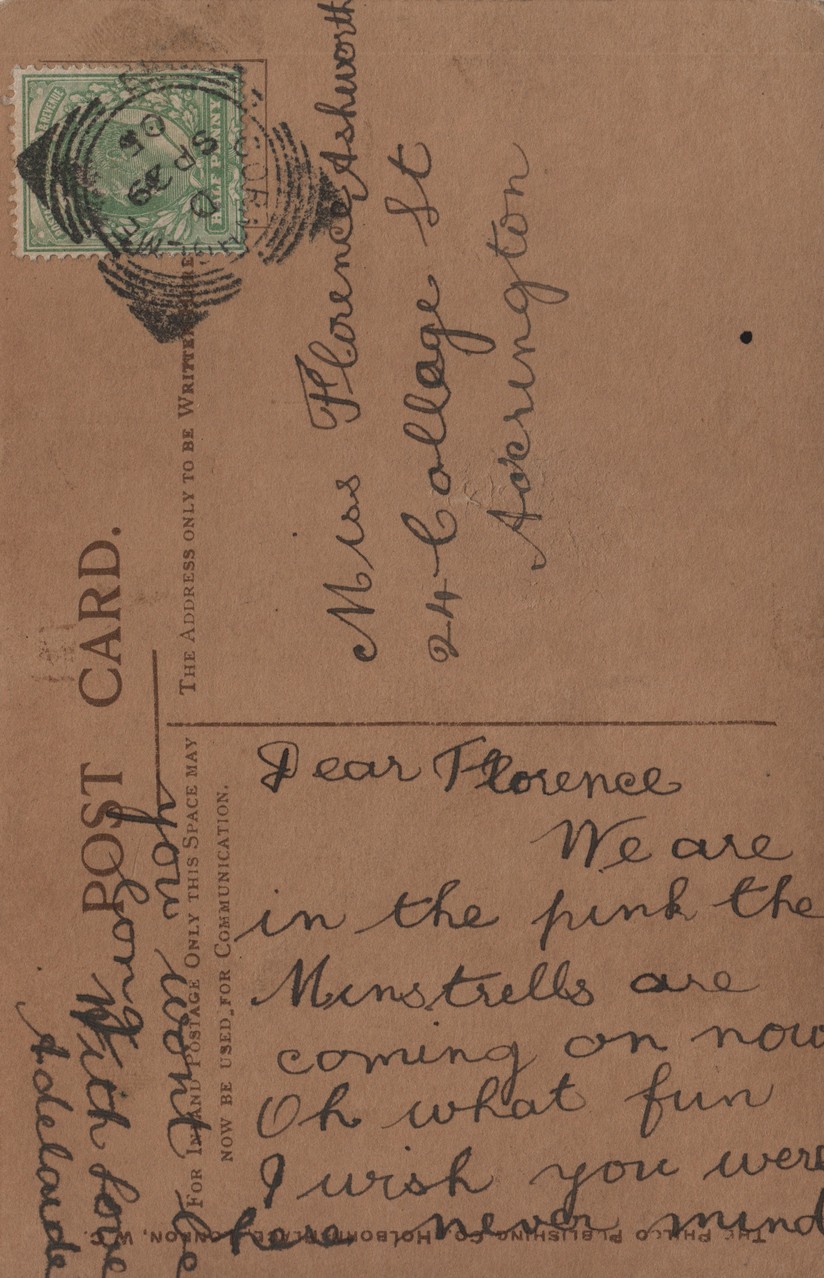 POST CARD.
FOR INLAND POSTAGE ONLY THIS SPACE MAY
NOW BE USED FOR COMMUNICATION.
THE ADDRESS ONLY TO BE WRITTEN HERE
HALF PENNY
SP 29
05
Miss Florence Ashworth
24 College St
Accrington
Dear Florence
We are
in the pink the
Minstrells are
coming on now
Oh what fun
I wish you were
here never mind
you wont be
long
With love
Adelaide
THE PHILCO PUBLISHING CO., HOLBORN PLACE, LONDON, W.C.